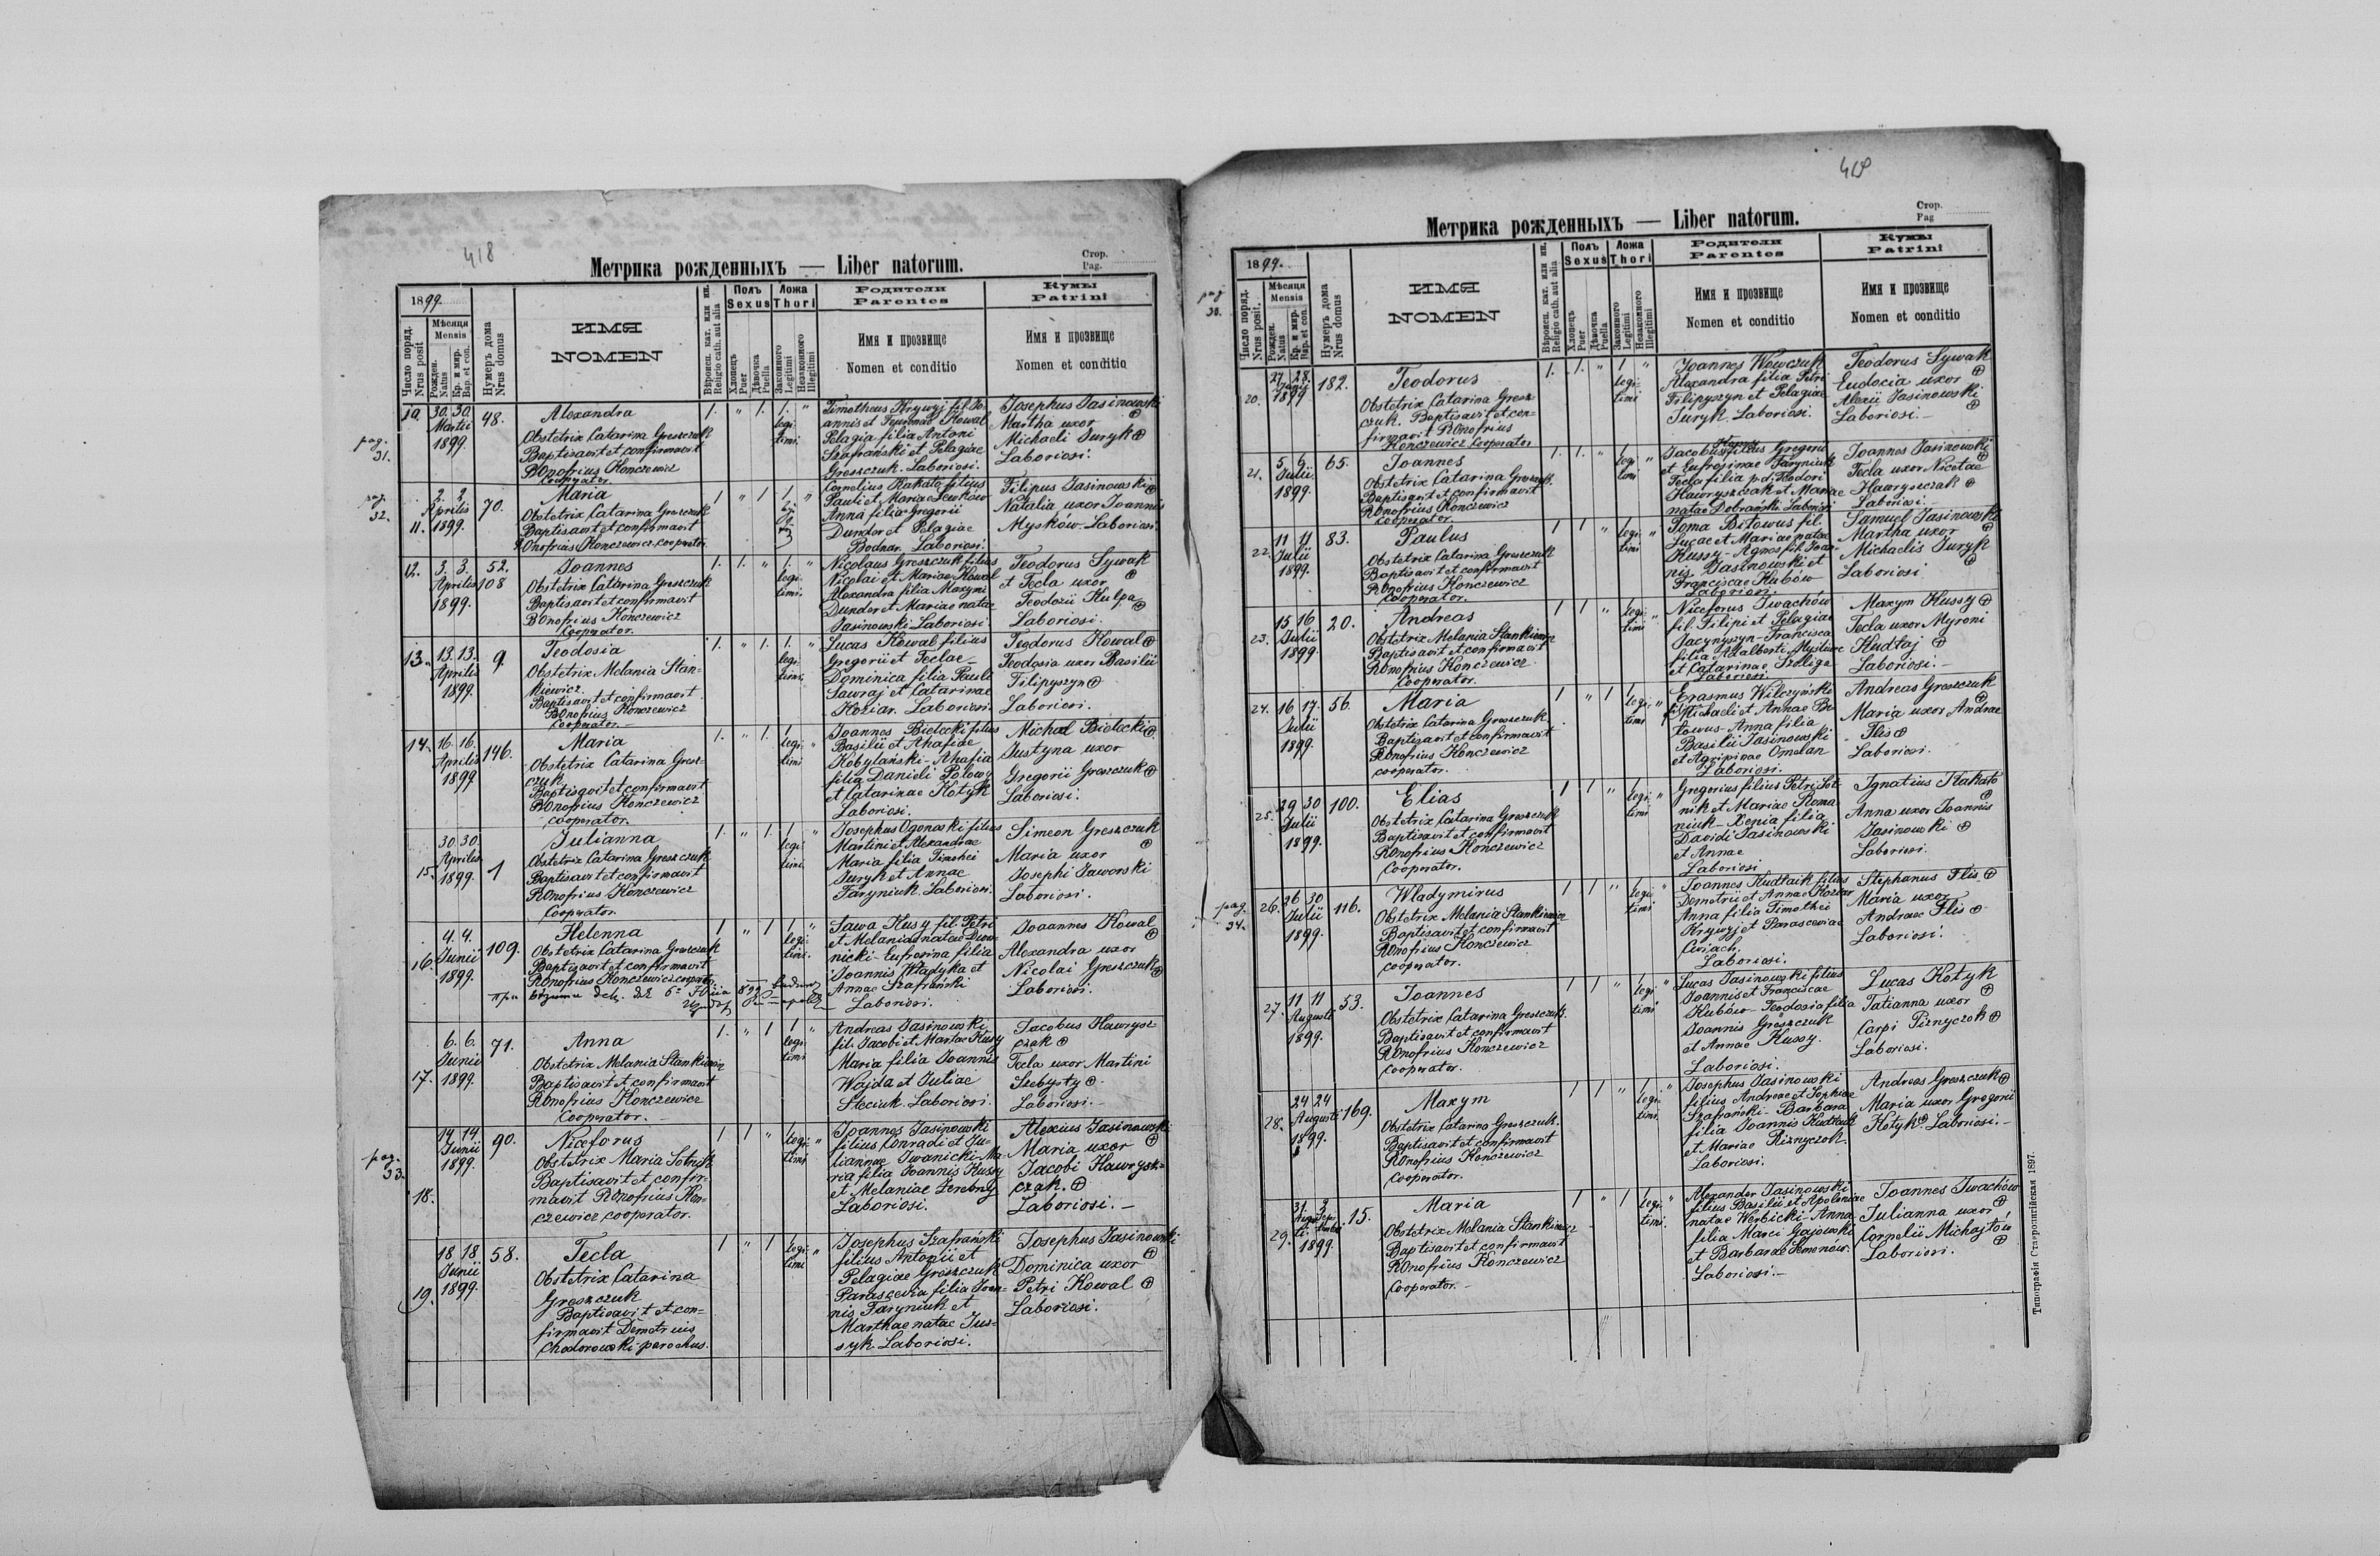 418
Метрика рожденныхъ — Liber natorum.
Стор.
Pag.
1899.
Число поряд.
Nrus posit
Мѣсяця
Mensis
Рожден.
Natus
Кр. и мир.
Bap. et con.
Нумеръ дома
Nrus domus
ИМЯ
NOMEN
Вѣроисп. кат. или ин.
Religio cath. aut alia
Полъ
Sexus
Хлопець
Puer
Дѣвочка
Puella
Ложа
Thori
Законного
Legitimi
Незаконного
Illegitimi
Родители
Parentes
Имя и прозвище
Nomen et conditio
Кумы
Patrini
Имя и прозвище
Nomen et conditio
pag.
31.
10. 30. 30.
Martii
1899.
48.
Alexandra
Obstetrix Catarina Greszczuk
Baptisavit et confirmavit
ROnofrius Konczewicz
Cooperator
1. " 1. 1. "
legi
timi
Timotheus Krywyj fil. Jo
annis et Kowal
Pelagia filia Antoni
Szafrański et Pelagiae
Greszczuk. Laboriosi.
Josephus Jasinowski
Martha uxor
Michaeli Juryk
Laboriosi.
pag.
32.
2. 2.
Aprilis
11. 1899.
70.
Maria
Obstetrix Catarina Greszczuk
Baptisavit et confirmavit
ROnofrius Konczewicz cooperator.
1 " 1 1 "
Cornelius Kakota filius
Pauli et Mariae Lewków
Anna filia Gregorii
Dundor et Pelagiae
Bodnar. Laboriosi.
Filipus Jasinowski
Natalia uxor Joannis
Mysków. Laboriosi.
12. 3. 3.
Aprilis
1899.
52.
108
Joannes
Obstetrix Catarina Greszczuk
Baptisavit et confirmavit
ROnofrius Konczewicz
Cooperator.
1. 1. " 1. "
legi
timi
Nicolaus Greszczuk filius
Nicolai et Mariae Kowal
Alexandra filia Maxymi
Dundor et Mariae natae
Jasinowski Laboriosi
Teodorus Sywak
et Tecla uxor
Teodozii Kulpa
Laboriosi.
13. 13. 13.
Aprilis
1899.
9.
Teodosia
Obstetrix Melania Stan-
kiewicz.
Baptisavit et confirmavit
ROnofrius Konczewicz
Cooperator.
1. " 1. 1. "
legi
timi
Lucas Kowal filius
Gregorii et Teclae –
Dominica filia Pauli
Sawraj et Catarinae
Koziar. Laboriosi.
Teodorus Kowal
Teodosia uxor Basilii
Filipyszyn
Laboriosi.
14. 16. 16.
Aprilis
1899
146.
Maria
Obstetrix Catarina Gresz-
czuk
Baptisavit et confirmavit
ROnofrius Konczewicz
cooperator.
1. " 1. 1
legi "
timi
Joannes Bielecki filius
Basilii et Ahafiae
Kobylański – Ahafia
filia Danieli Polowy
et Catarinae Kotyk
Laboriosi.
Michael Bielecki
Justyna uxor
Gregorii Greszczuk
Laboriosi.
30. 30.
Aprilis
15. 1899.
1
Julianna
Obstetrix Catarina Greszczuk
Baptisavit et confirmavit
ROnofrius Konczewicz
Cooperator.
1. " 1. 1 "
legi
timi
Josephus Ogonoski filius
Martini et Alexandrae
Maria filia Timothei
Juryk et Annae
Faryniuk. Laboriosi.
Simeon Greszczuk
Maria uxor
Josephi Jaworski
Laboriosi.
4. 4.
Junii
16. 1899.
109.
Helenna
Obstetrix Catarina Greszczuk
Baptisavit et confirmavit
ROnofrius Konczewicz cooperator
1 " 1 1 "
legi
timi
Sawa Kusy fil. Petri
et Melaniae natae Dwor
nicki – Eufrosina filia
Joannis Władyka et
Annae Szafrański
Laboriosi.
Joannes Kowal
Alexandra uxor
Nicolai Greszczuk
Laboriosi.
6. 6.
Junii
17. 1899.
71.
Anna
Obstetrix Melania Stankiewicz
Baptisavit et confirmavit
ROnofrius Konczewicz
Cooperator. –
1. " 1 1 "
legi
timi
Andreas Jasinowski
fil. Jacobi et Marthae Kussy
Maria filia Joannis
Wajda et Juliae
Steciuk. Laboriosi.
Jacobus Hawrysz
czak
Tecla uxor Martini
Szebysty
Laboriosi. –
pag.
33.
14. 14.
Junii
1899.
18.
90.
Niceforus
Obstetrix Maria Sotnik
Baptisavit et confir-
mavit ROnofrius Kon-
czewicz cooperator.
1 1 " legi "
timi
Joannes Jasinowski
filius Conradi et Ju-
liannae Iwanicki – Ma
ria filia Joannis Kussy
et Melaniae Zerebny
Laboriosi.
Alexius Jasinowski
Maria uxor
Jacobi Hawrysz-
czak.
Laboriosi. –
18 18
Junii
19. 1899.
58.
Tecla
Obstetrix Catarina
Greszczuk
Baptisavit et con-
firmavit Demetrius
Chodorowski parochus.
1 " 1 legi "
timi
Josephus Szafrański
filius Antonii et
Pelagiae Greszczuk
Parascevia filia Joan-
nis Faryniuk et
Marthae natae Jus-
syk Laboriosi.
Josephus Jasinowski
Dominica uxor
Petri Kowal
Laboriosi.
419
Метрика рожденныхъ — Liber natorum.
Стор.
Pag
1899.
Число поряд.
Nrus posit.
Мѣсяця
Mensis
Рожден.
Natus
Кр. и мир.
Bap. et con.
Нумеръ дома
Nrus domus
ИМЯ
NOMEN
Вѣроисп. кат. или ин.
Religio cath. aut alia
Полъ
Sexus
Хлопець
Puer
Дѣвочка
Puella
Ложа
Thori
Законного
Legitimi
Незаконного
Illegitimi
Родители
Parentes
Имя и прозвище
Nomen et conditio
Кумы
Patrini
Имя и прозвище
Nomen et conditio
pag
33.
27. 28.
Junii
20. 1899
182.
Teodorus
Obstetrix Catarina Gresz-
czuk. Baptisavit et con-
firmavit ROnofrius
Konczewicz Cooperator
1. 1. " 1 "
legi
timi
Joannes Wowczuk
Alexandra filia Petri
Filipyszyn et Pelagiae
Juryk. Laboriosi.
Teodorus Sywak
Eudocia uxor
Alexii Jasinowski
Laboriosi. –
5. 6.
21. Julii
1899.
65.
Joannes
Obstetrix Catarina Greszczuk.
Baptisavit et confirmavit
ROnofrius Konczewicz
Cooperator.
1. 1. " legi "
timi
Jacobus filius Gregorii
et Eufrosinae Faryniuk
Tecla filia pd. Teodori
Hawryszczak et Mariae
natae Dobrański. Laboriosi
Joannes Jasinowski
Tecla uxor Nicetae
Hawryszczak
Laboriosi. –
11 11
22. Julii
1899.
83.
Paulus
Obstetrix Catarina Greszczuk
Baptisavit et confirmavit
ROnofrius Konczewicz
Cooperator.
1 1 " legi "
timi
Toma Bitowus fil.
Lucae et Mariae natae
Kussy – Agnes fil. Joan-
nis Jasinowski et
Franciscae Kubów
Laboriosi.
Samuel Jasinowski
Martha uxor
Michaelis Juryk
Laboriosi
15 16
23. Julii
1899
20.
Andreas
Obstetrix Melania Stankiewicz
Baptisavit et confirmavit
ROnofrius Konczewicz
Cooperator.
1 1 " legi "
timi
Niceforus Iwachów
fil. Filipi et Pelagiae
Jacynyszyn – Francisca
filia Adalberti
et Catarinae Szeliga
Laboriosi.
Maxym Kussy
Tecla uxor Myroni
Kudłaj
Laboriosi. –
24. 16 17.
Julii
1899.
56.
Maria
Obstetrix Catarina Greszczuk
Baptisavit et confirmavit
ROnofrius Konczewicz
cooperator.
1 " 1 1
legi "
timi
Erasmus Wilczyński
fil. Michaeli et Annae Bi
towus – Anna filia
Basilii Jasinowski
et Agripinae Omelan
Laboriosi.
Andreas Greszczuk
Maria uxor Andreae
Flis
Laboriosi.
29 30
25. Julii
1899.
100.
Elias
Obstetrix Catarina Greszczuk
Baptisavit et confirmavit
ROnofrius Konczewicz
Cooperator.
1 1 " legi "
timi
Gregorius filius Petri Sot
nik et Mariae Roma
niuk – Xenia filia
Davidi Jasinowski
et Annae
Laboriosi
Ignatius Kakota
Anna uxor Joannis
Jasinowski
Laboriosi.
pag.
34.
26. 26 30
Julii
1899.
116.
Wladymirus
Obstetrix Melania Stankiewicz
Baptisavit et confirmavit
ROnofrius Konczewicz
cooperator.
1 1 " legi "
timi
Joannes Kudłaik filius
Demetrii et Annae Koziar
Anna filia Timothei
Krywyj et Parasceviae
Cwiach.
Laboriosi.
Stephanus Flis
Maria uxor
Andreae Flis
Laboriosi.
11 11
27. Augusti
1899.
53.
Joannes
Obstetrix Catarina Greszczuk.
Baptisavit et confirmavit
ROnofrius Konczewicz
Cooperator.
1 1 " legi "
timi
Lucas Jasinowski filius
Joannis et Franciscae
Kubów – Teodosia filia
Joannis Greszczuk
et Annae Kussy.
Laboriosi.
Lucas Kotyk
Tatianna uxor
Carpi Pirnyczok
Laboriosi.
24 24
28. Augusti
1899.
169.
Maxym
Obstetrix Catarina Greszczuk.
Baptisavit et confirmavit
ROnofrius Konczewicz
Cooperator.
1 1 " legi "
timi
Josephus Jasinowski
filius Andreae et Sophiae
Szafrański – Barbara
filia Joannis Kudłaik
et Mariae Riznyczok.
Laboriosi.
Andreas Greszczuk
Maria uxor Gregorii
Kotyk Laboriosi. –
31. 3
Augusti Septembris
29. 1899.
15.
Maria
Obstetrix Melania Stankiewicz
Baptisavit et confirmavit
ROnofrius Konczewicz
Cooperator. –
1 " 1 legi "
timi
Alexander Jasinowski
filius Basilii et Apoloniae
natae Werbicki – Anna
filia Marci Gajowski
et Barbarae Semenów.
Laboriosi. –
Joannes Iwachów
Julianna uxor
Cornelii Michajłów
Laboriosi.
Типографія Ставропигійская 1897.